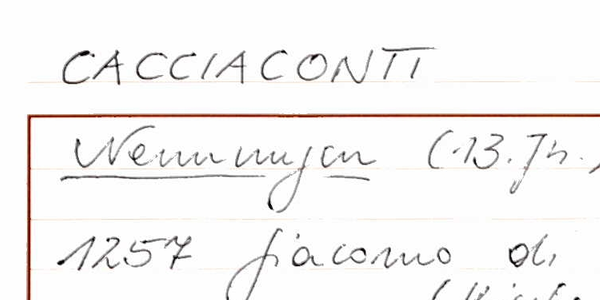 CACCIACONTI
Nennungen (13. Jh.)
1257 Giacomo di